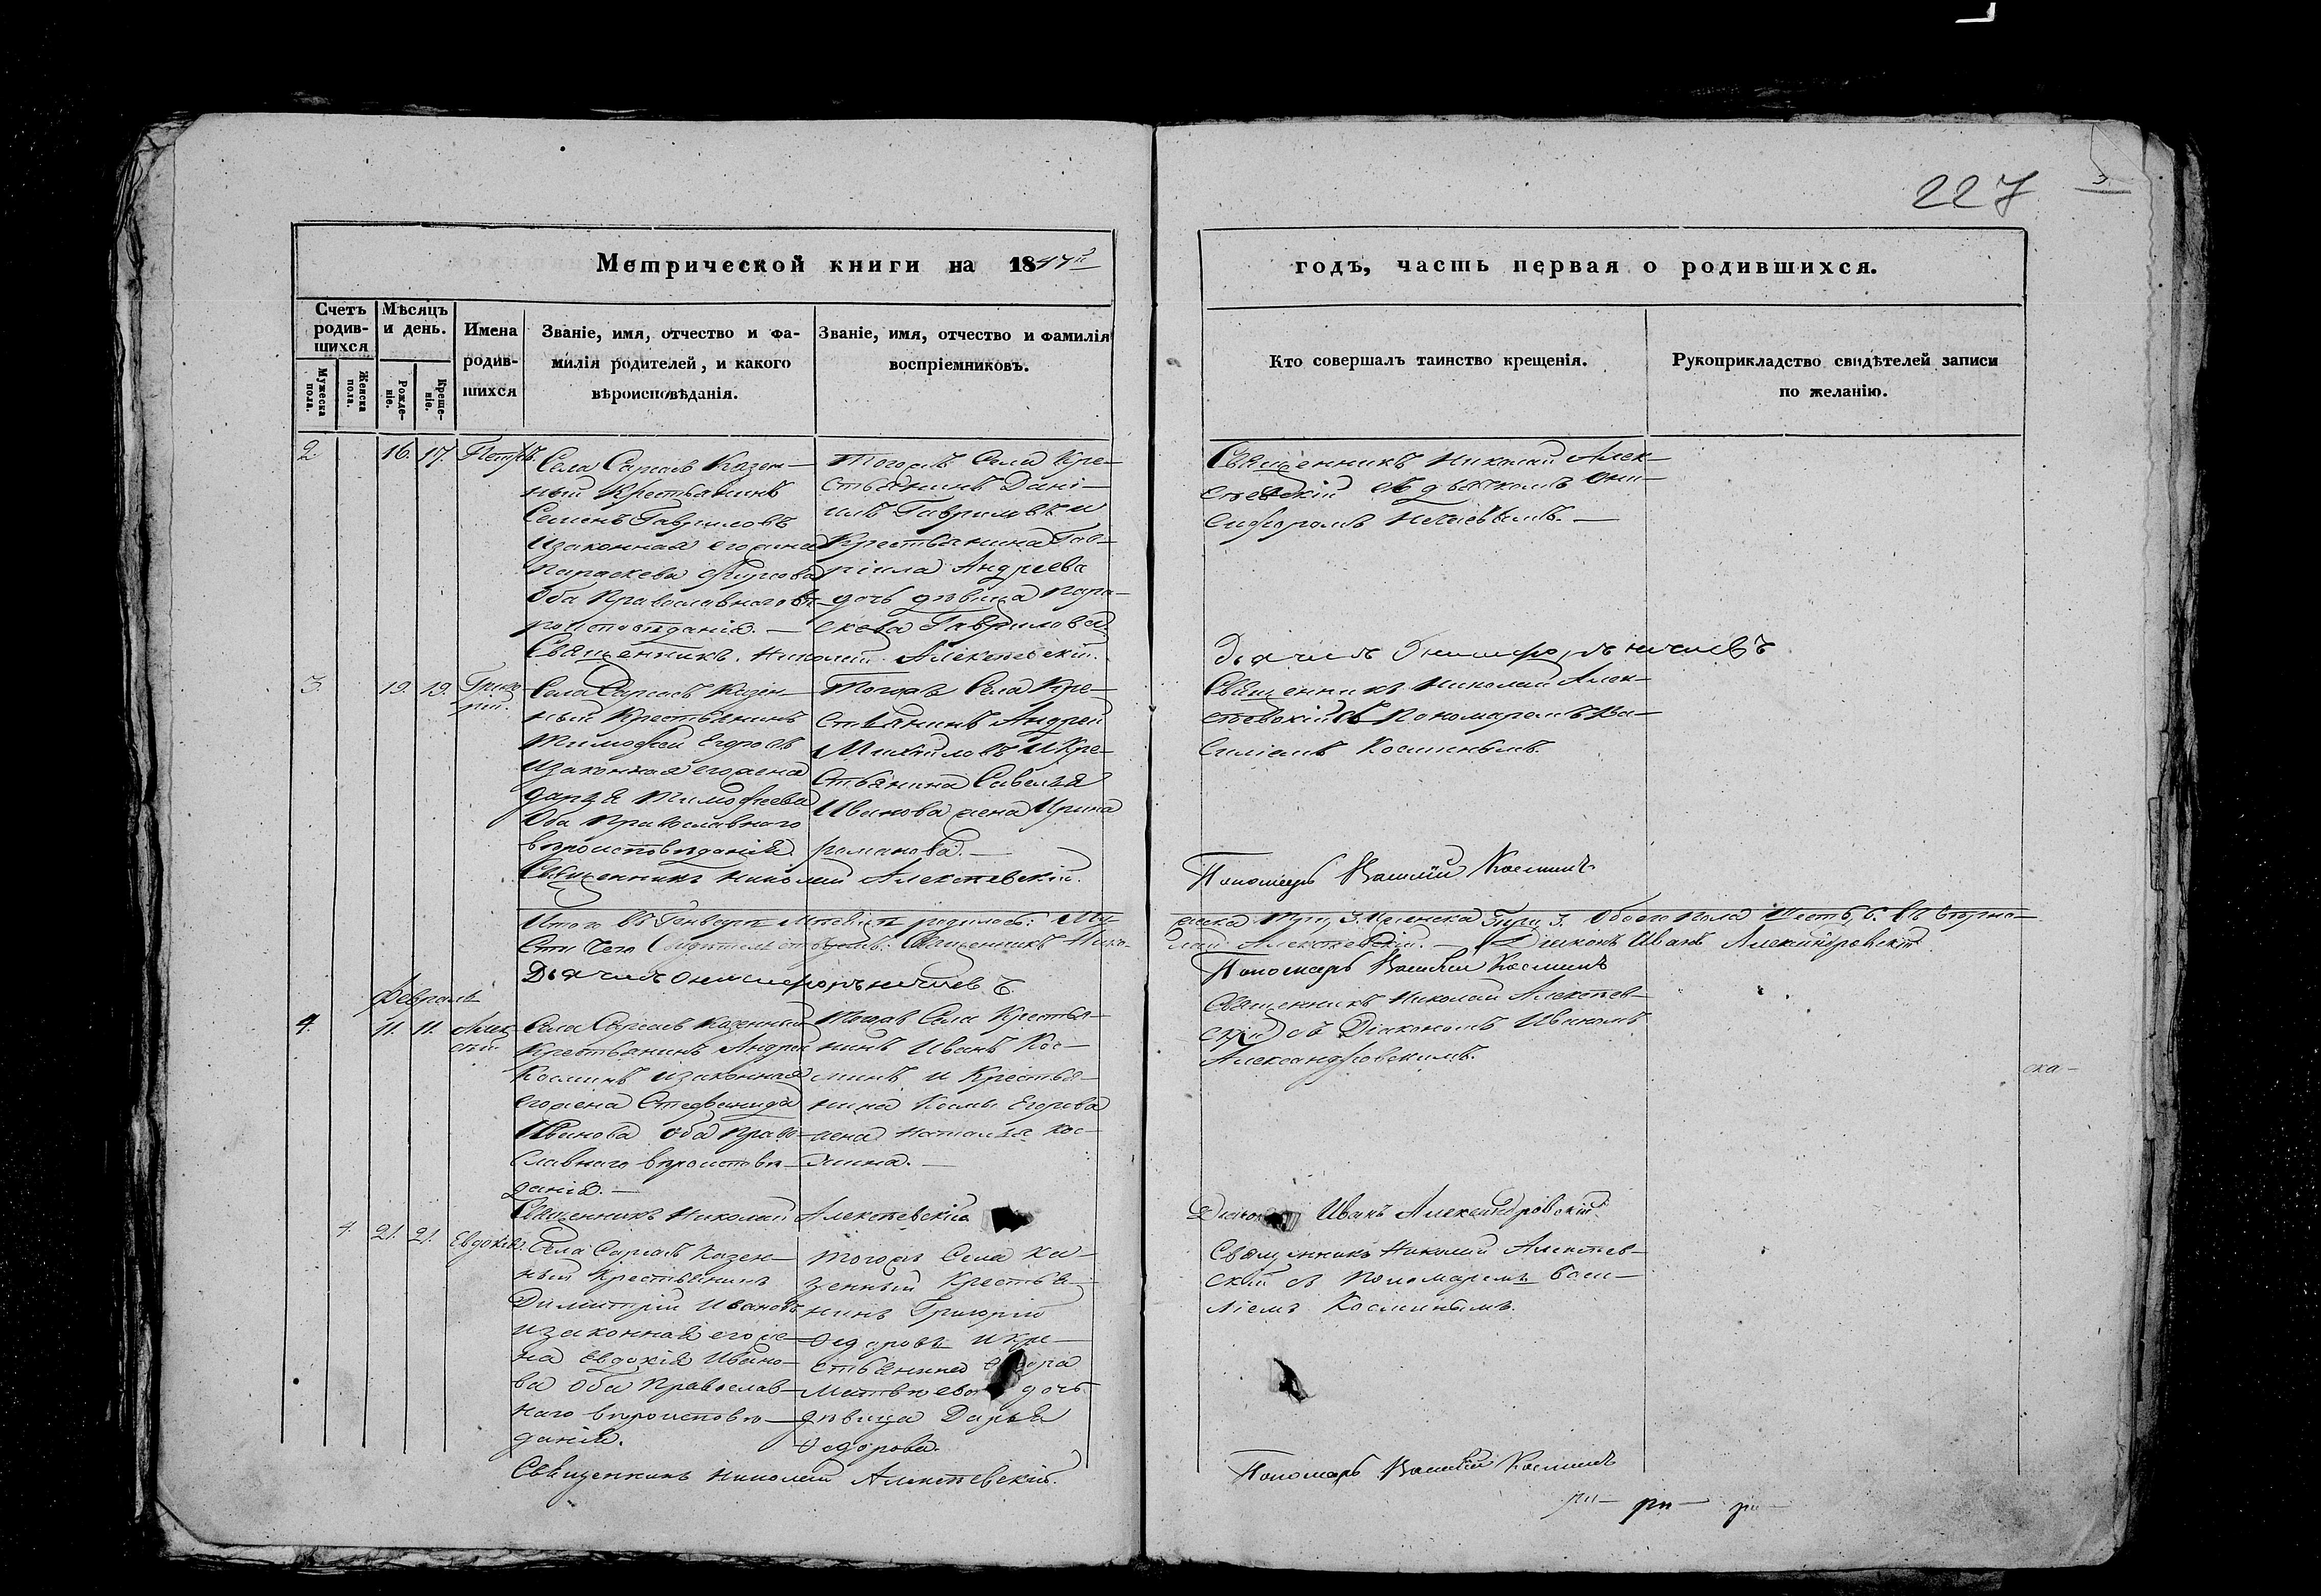 227
Метрической книги на 1847й
годъ, часть первая о родившихся.
Счетъ родив-шихся
Мѣсяцъ и день.
Имена родив-шихся
Званіе, имя, отчество и фа-
милія родителей, и какого
вѣроисповѣданія.
Званіе, имя, отчество и фамилія
воспріемниковъ.
Кто совершалъ таинство крещенія.
Рукоприкладство свидѣтелей записи
по желанію.
Мужеска пола.
Женска пола.
Рожде-ніе.
Креще-ніе.
2. 16. 17. Петръ.
Села Казен-
ный Крестьянинъ
Семенъ Гавриловъ
и законная его жена
Параскева
Оба Православнаго вѣ-
роисповѣданія. —
Священникъ Николай Алексѣевскій.
Тогожъ Села Кре-
стьянинъ Дані-
илъ Гавриловъ и
Крестьянина Гав-
ріила Андреева
дочь дѣвица Пара-
скева Гаврилова.
Священникъ Николай Алек-
сѣевскій съ дьячкомъ Они-
сифоромъ —
Дьячекъ Онисифоръ
3. 19. 19. Григо-
рій.
Села Казен-
ный Крестьянинъ
Тимофей Егоровъ
и законная его жена
Дарья Тимофеева
Оба Православнаго
вѣроисповѣданія.
Священникъ Николай Алексѣевскій.
Тогожъ Села Кре-
стьянинъ Андрей
Михайловъ и Кре-
стьянина Савелья
Иванова жена Ирина
Романова. —
Священникъ Николай Алек-
сѣевскій съ Пономаремъ Ва-
силіемъ Косминымъ.
Пономарь Василій Косминъ
Итого въ Генварѣ Мѣсяцѣ родилось: Му-
жеска Пола 3. Женска 3. Обоего пола шесть, 6. Въ вѣрно-
сти чего Священникъ Нико-
лай Алексѣевскій. — Діаконъ Иванъ Александровскій
Дьячекъ Онисифоръ
Пономарь Василій Косминъ
Февраль
4. 11. 11. Алек-
сѣй.
Села Казенный
Крестьянинъ Андрей
Косминъ и законная
его жена Стефанида
Иванова Оба Право-
славнаго вѣроисповѣ-
данія. —
Священникъ Николай Алексѣевскій
Тогожъ Села Крестья-
нинъ Иванъ Кос-
минъ и Крестья-
нина Космы Егорова
жена Наталья Кос-
мина. —
Священникъ Николай Алексѣев-
скій съ Діакономъ Иваномъ
Александровскимъ.
ска-
Діаконъ Иванъ Александровскій
4. 21. 21. Евдокія.
Села Казен-
ный Крестьянинъ
Димитрій Ивановъ
и законная его же-
на Евдокія Ивано-
ва Оба Православ-
наго вѣроисповѣ-
данія.
Священникъ Николай Алексѣевскій.
Тогожъ Села Ка-
зенный Крестья-
нинъ Григорій
Ѳедоровъ и Кре-
стьянина
Матвѣева дочь
дѣвица Дарья
Ѳедорова.
Священникъ Николай Алексѣев-
скій съ Пономаремъ Васи-
ліемъ Косминымъ.
Пономарь Василій Косминъ
ри— ри— ри—